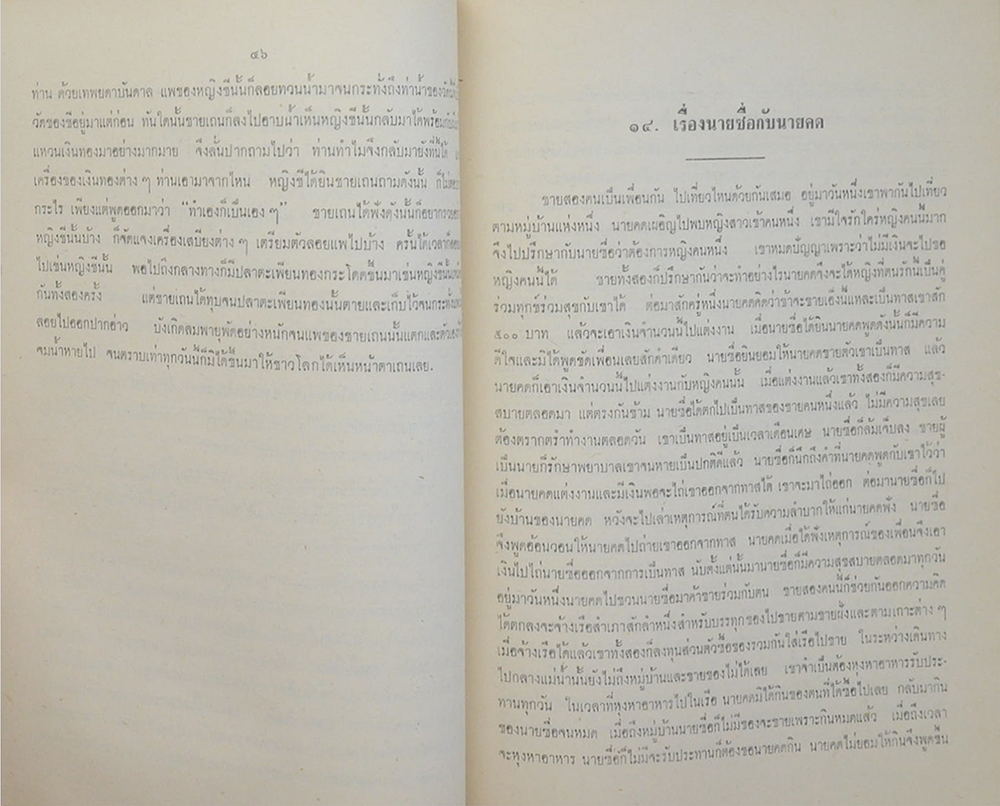 ๔๖
ท่าน ด้วยเทพยดาบันดาล แพของหญิงชีนั้นก็ลอยทวนน้ำมาจนกระทั่งถึงท่าน้ำของวัด
วัดของชีอยู่มาแต่ก่อน ทันใดนั้นชายเถนก็ลงไปอาบน้ำเห็นหญิงชีนั้นกลับมาได้พร้อม
แหวนเงินทองมาอย่างมากมาย จึงลั่นปากถามไปว่า ท่านทำไมจึงกลับมายังที่นี้ได้
เครื่องของเงินทองต่าง ๆ ท่านเอามาจากไหน หญิงชีได้ยินชายเถนถามดังนั้น ก็ไม่
กระไร เพียงแต่พูดออกมาว่า “ทำเองก็เป็นเอง ๆ” ชายเถนได้ฟังดังนั้นก็อยาก
หญิงชีนั้นบ้าง ก็จัดแจงเครื่องเสบียงต่าง ๆ เตรียมตัวลอยแพไปบ้าง ครั้นได้เวลาก็
ไปเช่นหญิงชีนั้น พอไปถึงกลางทางก็มีปลาตะเพียนทองกระโดดขึ้นมาเช่นหญิงชีนั้น
กันทั้งสองครั้ง แต่ชายเถนได้ทุบจนปลาตะเพียนทองนั้นตายและเก็บไว้จนกระทั่ง
ลอยไปออกปากอ่าว บังเกิดลมพายุพัดอย่างหนักจนแพของชายเถนนั้นแตกและตัวเอง
จมน้ำหายไป จนตราบเท่าทุกวันนี้ก็มิได้ขึ้นมาให้ชาวโลกได้เห็นหน้าตาเถนเลย.
๑๔. เรื่องนายซื่อกับนายคด
ชายสองคนเป็นเพื่อนกัน ไปเที่ยวไหนด้วยกันเสมอ อยู่มาวันหนึ่งเขาพากันไปเที่ยว
ตามหมู่บ้านแห่งหนึ่ง นายคดเผอิญไปพบหญิงสาวเข้าคนหนึ่ง เขามีใจรักใคร่หญิงคนนี้มาก
จึงไปปรึกษากับนายซื่อว่าต้องการหญิงคนหนึ่ง เขาหมดปัญญาเพราะว่าไม่มีเงินจะไปขอ
หญิงคนนี้ได้ ชายทั้งสองก็ปรึกษากันว่าจะทำอย่างไรนายคดจึงจะได้หญิงที่ตนรักนี้เป็นคู่
ร่วมทุกข์ร่วมสุขกับเขาได้ ต่อมาสักครู่หนึ่งนายคดคิดว่าข้าจะขายเอ็งนี่แหละเป็นทาสเขาสัก
๕๐๐ บาท แล้วจะเอาเงินจำนวนนี้ไปแต่งงาน เมื่อนายซื่อได้ยินนายคดพูดดังนั้นก็มีความ
ดีใจและมิได้พูดขัดเพื่อนเลยสักคำเดียว นายซื่อยินยอมให้นายคดขายตัวเขาเป็นทาส แล้ว
นายคดก็เอาเงินจำนวนนี้ไปแต่งงานกับหญิงคนนั้น เมื่อแต่งงานแล้วเขาทั้งสองก็มีความสุข-
สบายตลอดมา แต่ตรงกันข้าม นายซื่อได้ตกไปเป็นทาสของชายคนหนึ่งแล้ว ไม่มีความสุขเลย
ต้องตรากตรำทำงานตลอดวัน เขาเป็นทาสอยู่เป็นเวลาเดือนเศษ นายซื่อก็ล้มเจ็บลง ชายผู้
เป็นนายก็รักษาพยาบาลเขาจนหายเป็นปกติดีแล้ว นายซื่อก็นึกถึงคำที่นายคดพูดกับเขาไว้ว่า
เมื่อนายคดแต่งงานและมีเงินพอจะไถ่เขาออกจากทาสได้ เขาจะมาไถ่ออก ต่อมานายซื่อก็ไป
ยังบ้านของนายคด หวังจะไปเล่าเหตุการณ์ที่ตนได้รับความลำบากให้แก่นายคดฟัง นายซื่อ
จึงพูดอ้อนวอนให้นายคดไปถ่ายเขาออกจากทาส นายคดเมื่อได้ฟังเหตุการณ์ของเพื่อนจึงเอา
เงินไปไถ่นายซื่อออกจากการเป็นทาส นับตั้งแต่นั้นมานายซื่อก็มีความสุขสบายตลอดมาทุกวัน
อยู่มาวันหนึ่งนายคดไปชวนนายซื่อมาค้าขายร่วมกับตน ชายสองคนนี้ก็ช่วยกันออกความคิด
ได้ตกลงจะจ้างเรือสำเภาสักลำหนึ่งสำหรับบรรทุกของไปขายตามชายฝั่งและตามเกาะต่าง ๆ
เมื่อจ้างเรือได้แล้วเขาทั้งสองก็ลงทุนส่วนตัวซื้อของรวมกันใส่เรือไปขาย ในระหว่างเดินทาง
ไปกลางแม่น้ำนั้นยังไม่ถึงหมู่บ้านและขายของไม่ได้เลย เขาจำเป็นต้องหุงหาอาหารรับประ-
ทานทุกวัน ในเวลาที่หุงหาอาหารไปในเรือ นายคดมิได้กินของตนที่ได้ซื้อไปเลย กลับมากิน
ของนายซื่อจนหมด เมื่อถึงหมู่บ้านนายซื่อก็ไม่มีของจะขายเพราะกินหมดแล้ว เมื่อถึงเวลา
จะหุงหาอาหาร นายซื่อก็ไม่มีจะรับประทานก็ต้องขอนายคดกิน นายคดไม่ยอมให้กินจึงพูดขึ้น